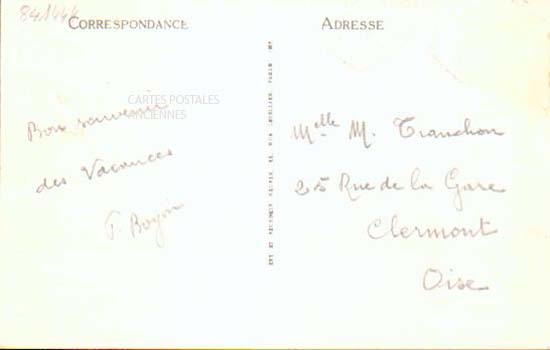 841444
CORRESPONDANCE
ADRESSE
CARTES POSTALES
ANCIENNES
Bon souvenir
des Vacances
Melle M. Tranchon
25 Rue de la Gare
Clermont
Oise